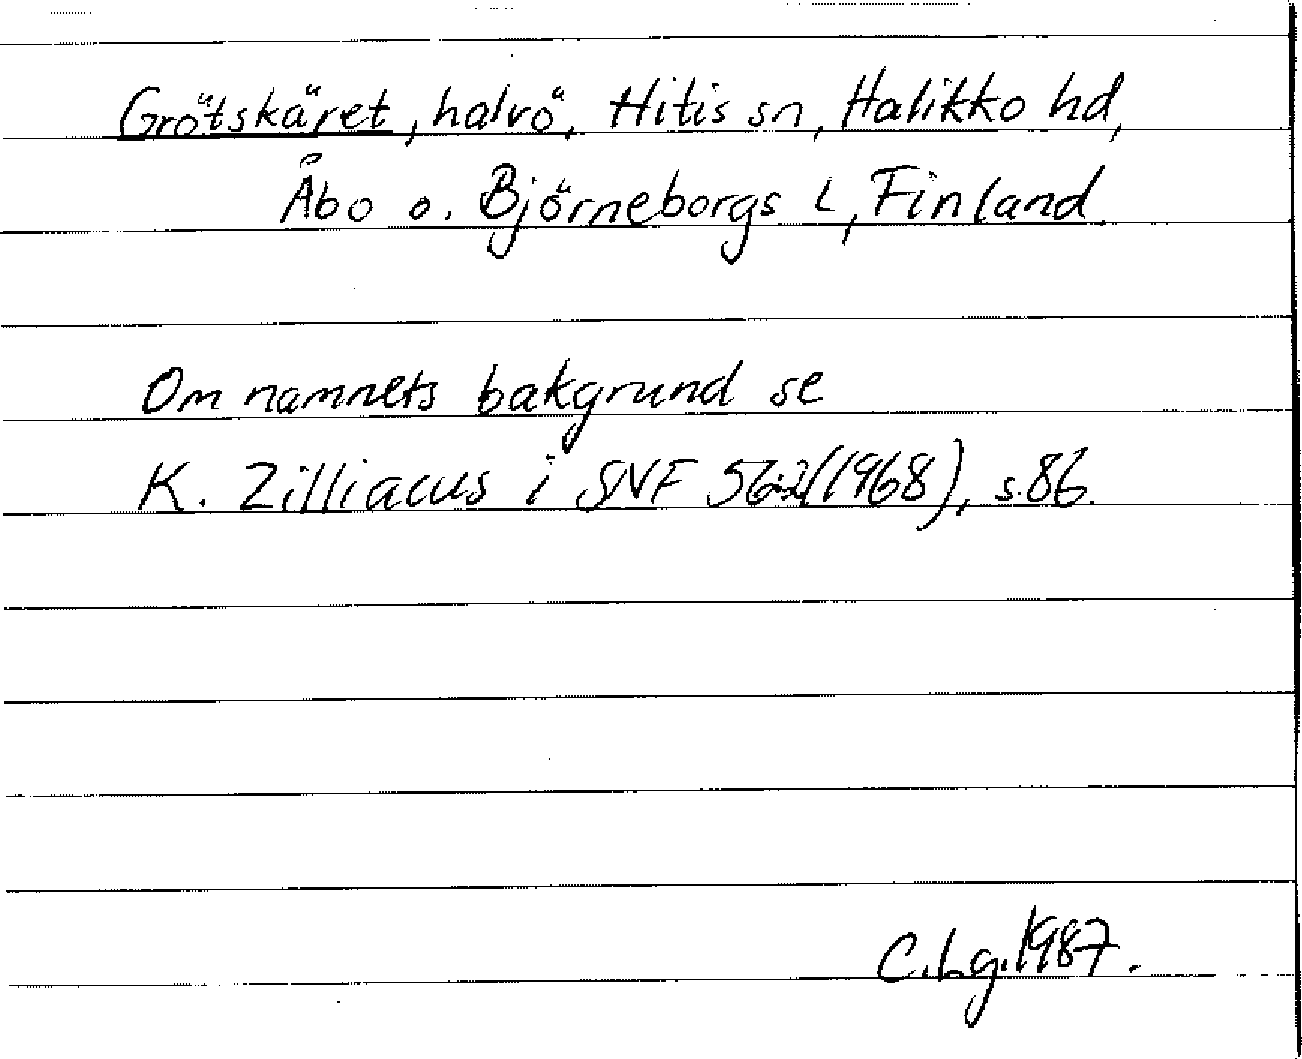 Grötskäret, halvö, Hitis sn, Halikko hd,
Åbo o. Björneborgs L, Finland.
Om namnets bakgrund se
K. Zilliacus i SNF 56:2(1968), s.86.
C.hg.1987.